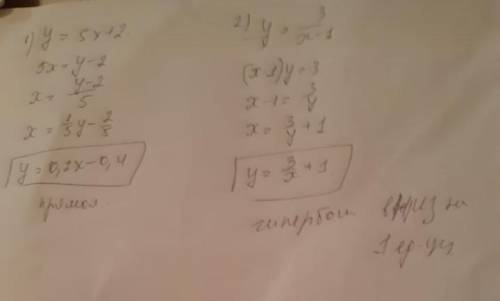 1) y = 5x+2
5x = y-2
x = \frac{y-2}{5}
x = \frac{1}{5}y - \frac{2}{5}
y = 0,2x-0,4
прямая
2) y = \frac{3}{x-1}
(x-1)y = 3
x-1 = \frac{3}{y}
x = \frac{3}{y} + 1
y = \frac{3}{x} + 1
гипербола
вверх на
1 ед-цу